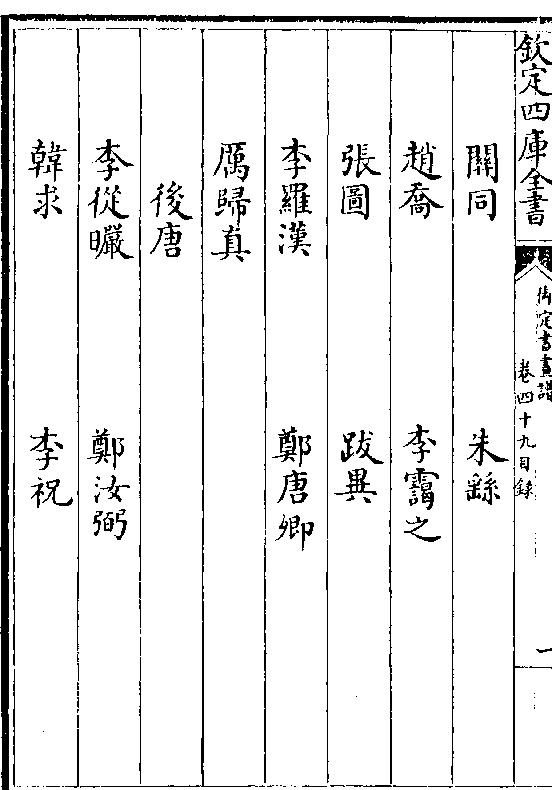 欽定四庫全書
御定書畫譜
卷四十九目錄
一
關同 朱繇
趙喬 李靄之
張圖 跋異
李羅漢 鄭唐卿
厲歸真
後唐
李從曮 鄭汝弼
韓求 李祝